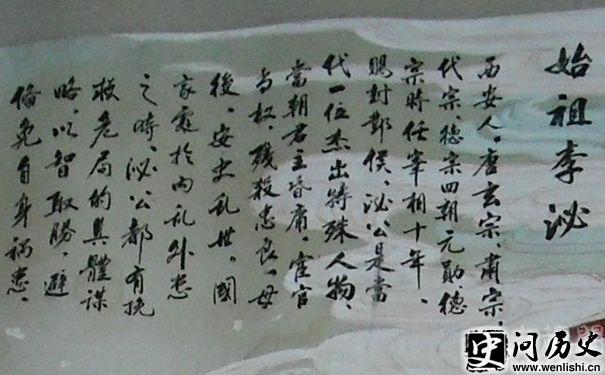 始祖李泌
西安人。唐玄宗、肃宗、
代宗、德宗四朝元勋、德
宗時任宰相十年、
賜封鄴侯、泌公是當
代一位杰出特殊人物、
當朝君主昏庸、宦官
当权、殘殺忠良、毋
後、安史乱世、國
家處於内乱外患
之時、泌公都有挽
救危局的具體谋
略、以智取勝、避
免自身祸患、
史问历史
www.wenlishi.cn